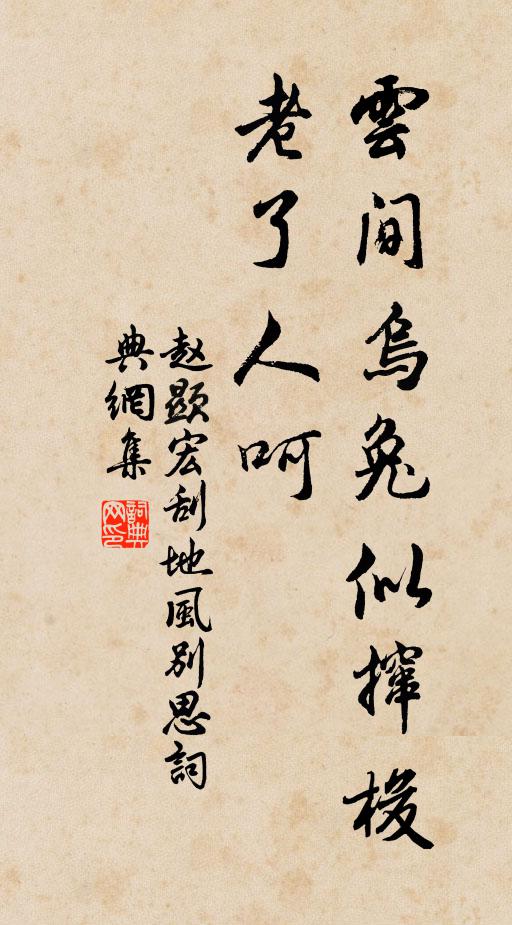 雲間烏兔似攛梭
老了人呵
赵顯宏刮地風别思詞
典網集
詞典
网印